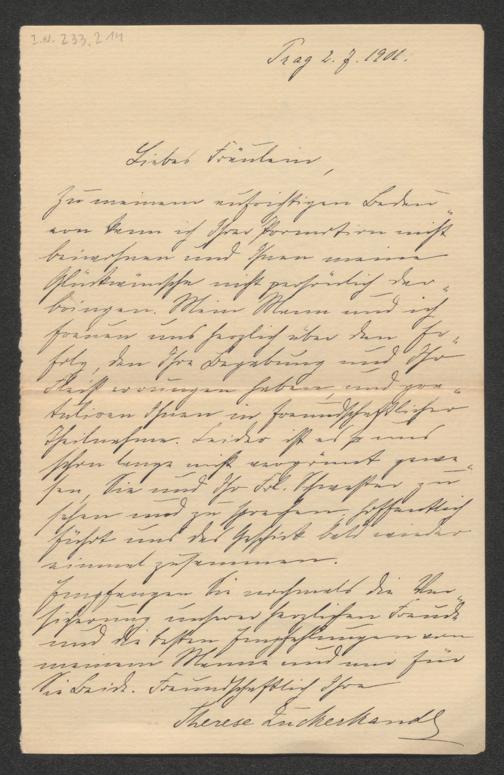 I.N. 233.214
Prag 2. 7. 1901.
Liebes Fräulein,
Zu meinem aufrichtigen Bedau-
ern kann ich Ihrer Promotion nicht
beiwohnen und Ihnen meine
Glückwünsche nicht persönlich dar-
bringen. Mein Mann und ich
freuen uns herzlich über den Er-
folg, den Ihre Begabung und Ihr
Fleiß errungen haben, und gra-
tuliren Ihnen in freundschaftlicher
Theilnahme. Leider ist es uns
schon lange nicht vergönnt gewe-
sen, Sie und Ihr Frl. Schwester zu
sehen und zu sprechen. Hoffentlich
führt uns das Geschick bald wieder
einmal zusammen.
Empfangen Sie nochmals die Ver-
sicherung unserer herzlichen Freude
und die besten Empfehlungen von
meinem Manne und mir für
Sie Beide. Freundschaftlich Ihre
Therese Zuckerkandl